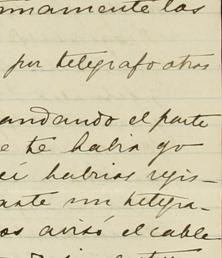 nnamente las
por telegrafo otras
andando el parte
e te habia yo
ei habrias regis-
ante un telegra-
os avisó el cable